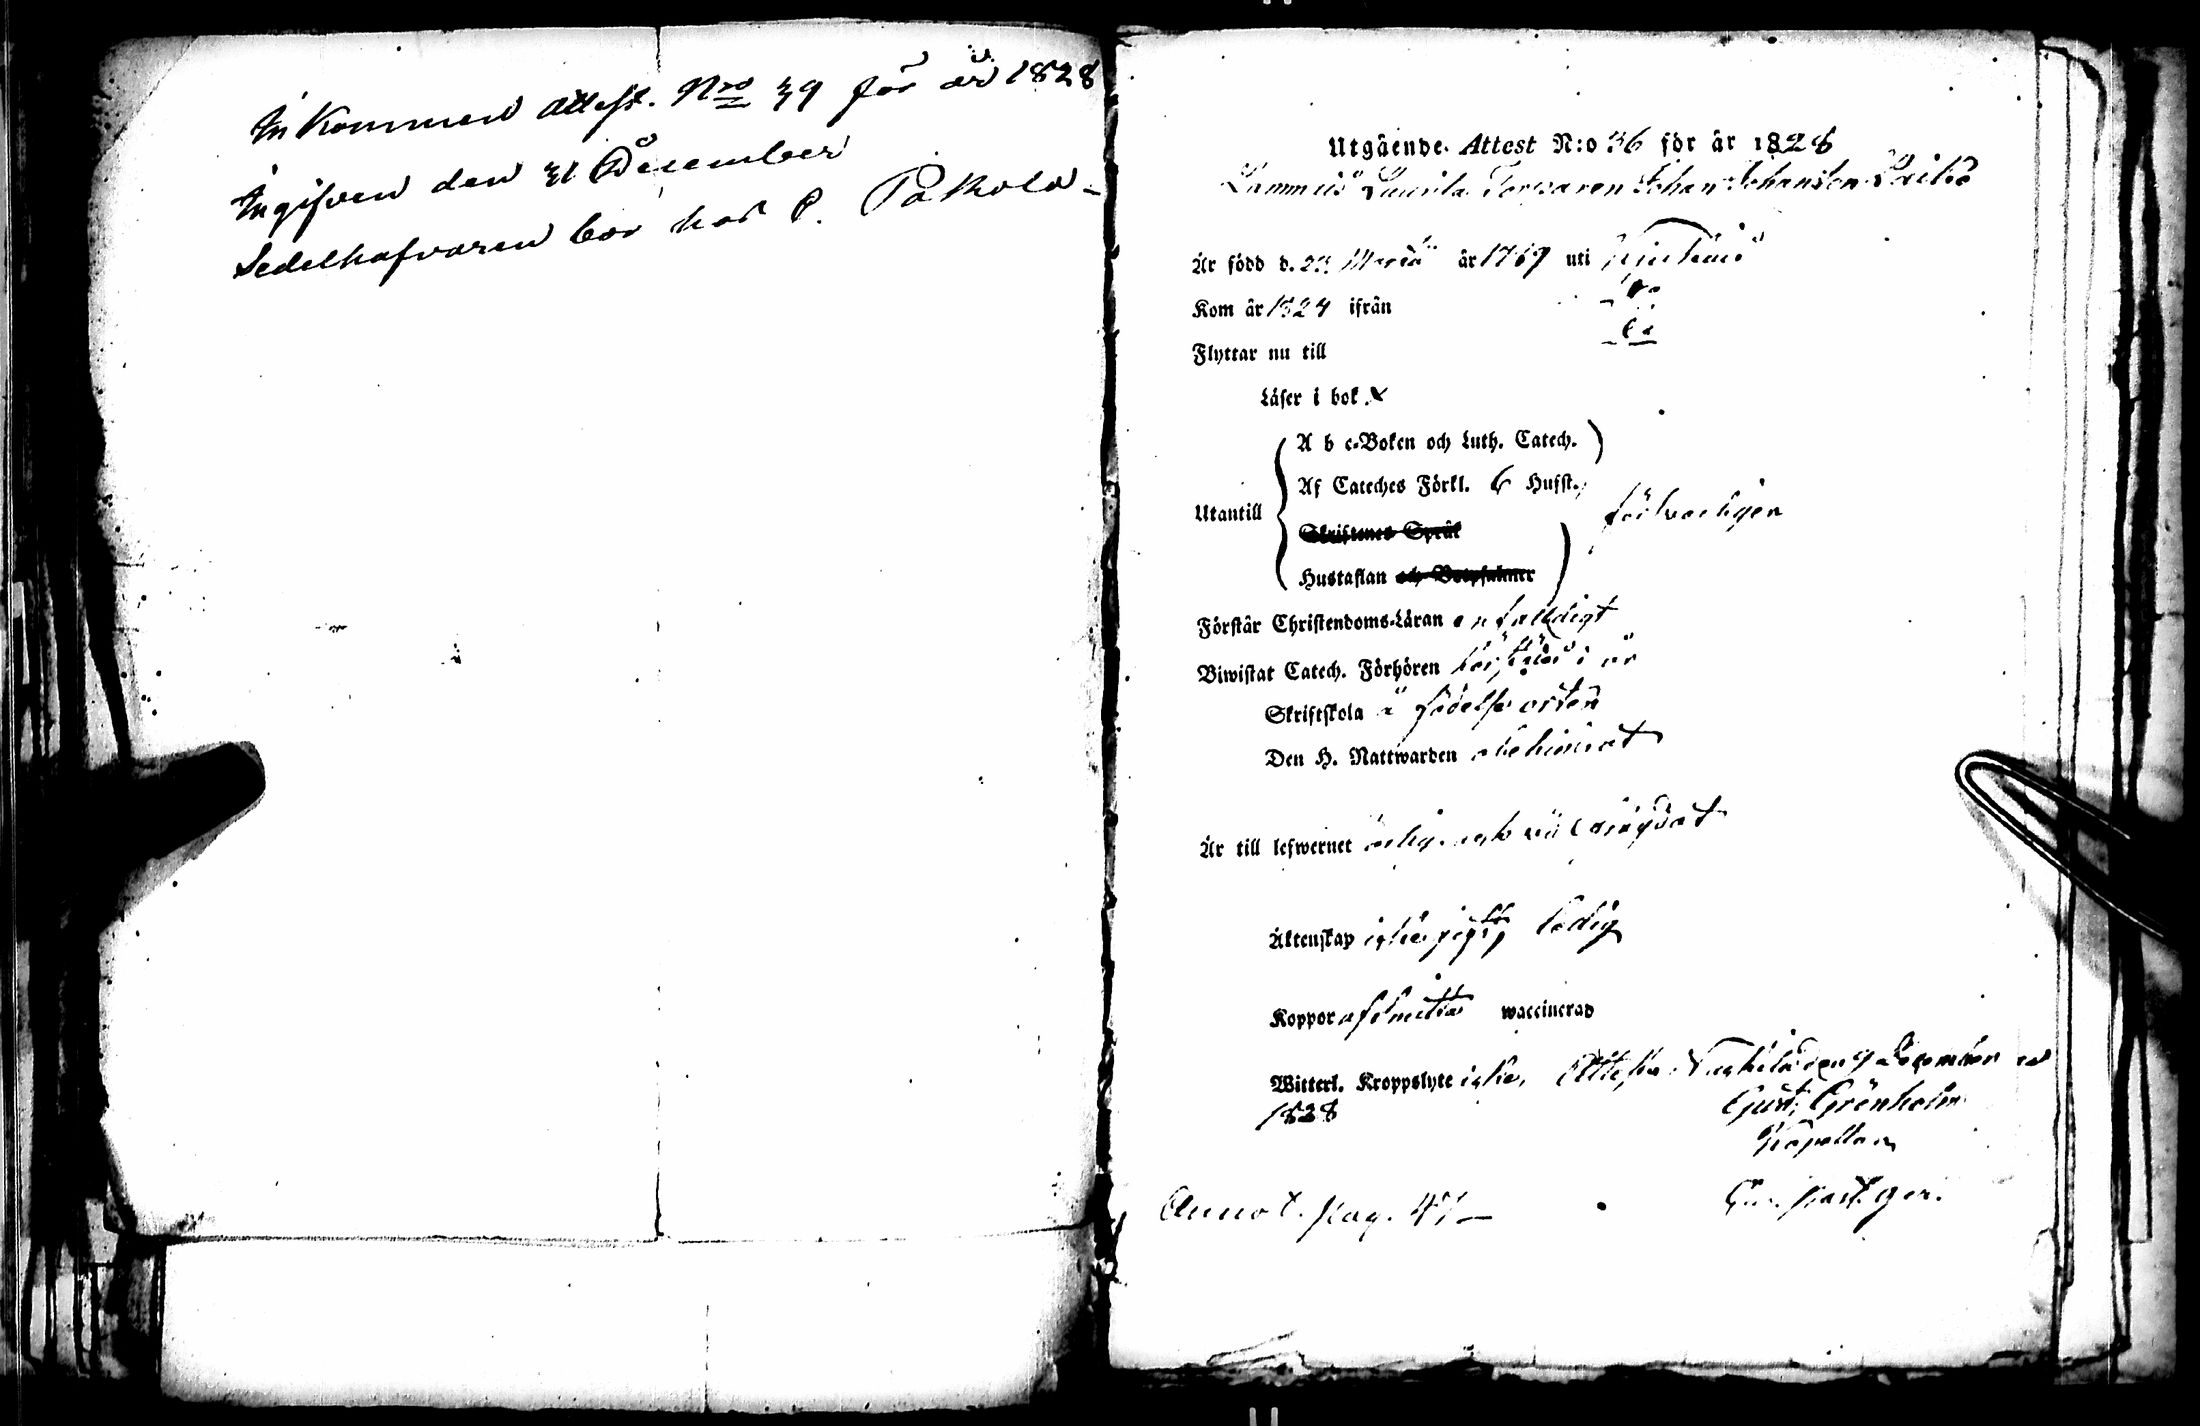 Inkommen attest. Nro 39 för år 1828
Ingifven den 31 December
Sedelhafvaren bor hos P. Pakola
Utgående Attest N:o 36 för år 1828
Johan Johansson
Är född d. år 1769 uti
Kom år 1824 ifrån
Flyttar nu till
Läser i bok x
Utantill
A b c-Boken och Luth. Catech.
Af Cateches Förkl. 6 Hufst.
Skriftenes Språk
Hustaflan och Botpsalmer
försvarligen
Förstår Christendoms-Läran enfaldigt
Biwistat Catech. Förhören i år
Skriftskola å födelse orten
Den H. Nattwarden
Är till lefwernet ärlig och
Äktenskap icke gift, ledig
Koppor waccinerad
Witterl. Kroppslyte icke. Attest. den 9 December
1828
Gust. Grönholm
Kapellan
Annot. pag. 47